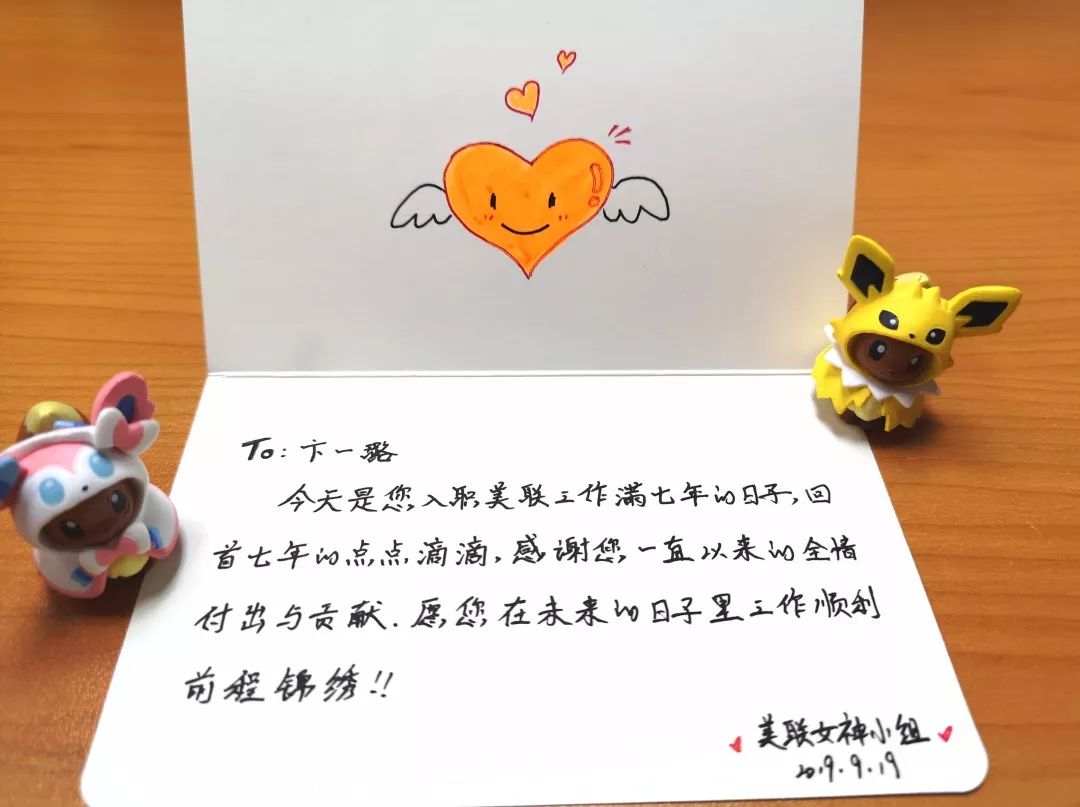 To: 卞一璐
今天是您入职美联工作满七年的日子,回
首七年的点点滴滴,感谢您一直以来的全情
付出与贡献.愿您在未来的日子里工作顺利
前程锦绣!!
美联女神小组
2019.9.19